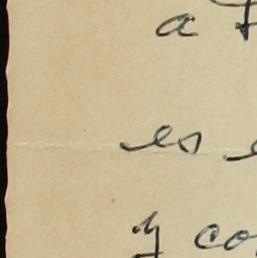 a
es
y co